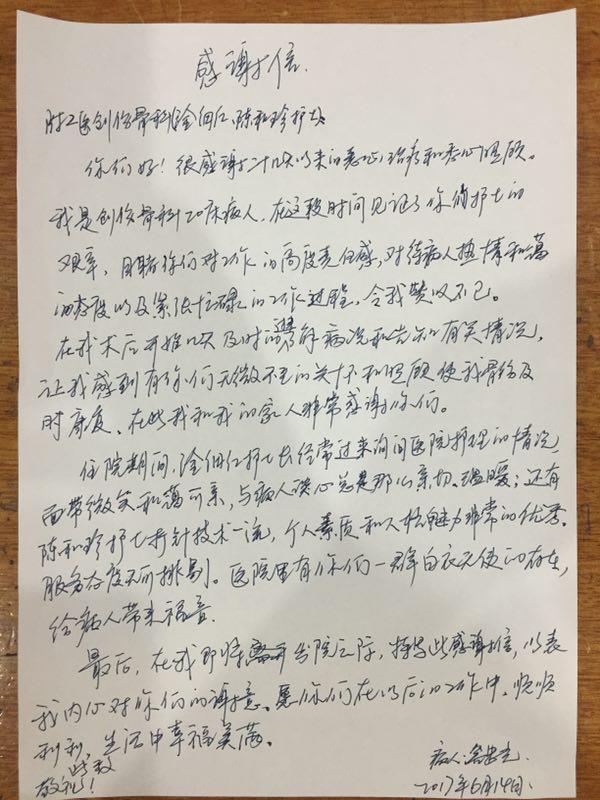 感谢信.
创伤骨科涂细红、陈和珍护士
你们好！很感谢二十几天以来的悉心治疗和悉心照顾。
我是创伤骨科20床病人，在这段时间见证了你们护士的
艰辛，目睹你们对工作的高度责任感，对待病人热情和蔼
的态度以及紧张忙碌的工作过程，令我赞叹不已。
在我术后开推几天及时的了解病况和告知有关情况，
让我感到有你们无微不至的关怀和照顾使我骨伤及
时康复、在此我和我的家人非常感谢你们。
住院期间，涂细红护士长经常过来询问医院护理的情况，
面带微笑和蔼可亲，与病人谈心总是那么亲切、温暖；还有
陈和珍护士打针技术一流，个人素质和人格魅力非常的优秀。
服务态度无可挑剔。医院里有你们一群白衣天使的存在，
给病人带来福音.
最后，在我即将离开出院之际，特写此感谢信，以表
我内心对你们的谢意。愿你们在以后的工作中，顺顺
利利，生活中幸福美满。
此致
敬礼！
病人:
2017年6月14日.